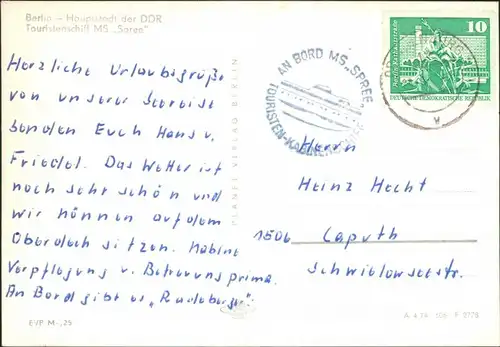 Berlin – Hauptstadt der DDR
Touristenschiff MS „Spree"
Herzliche Urlaubsgrüße
von unserer Seereise
senden Euch Hans u.
Friedel. Das Wetter ist
noch sehr schön und
wir können auf dem
Oberdeck sitzen. Kabine
Verpflegung u. Betreuung prima.
An Bord gibt es „Radeberger".
EVP M -,25
PLANET-VERLAG BERLIN
AN BORD MS „SPREE"
TOURISTEN-
10
DEUTSCHE DEMOKRATISCHE REPUBLIK
Herrn
Heinz Hecht
1506 Caputh
Schwielowseestr.